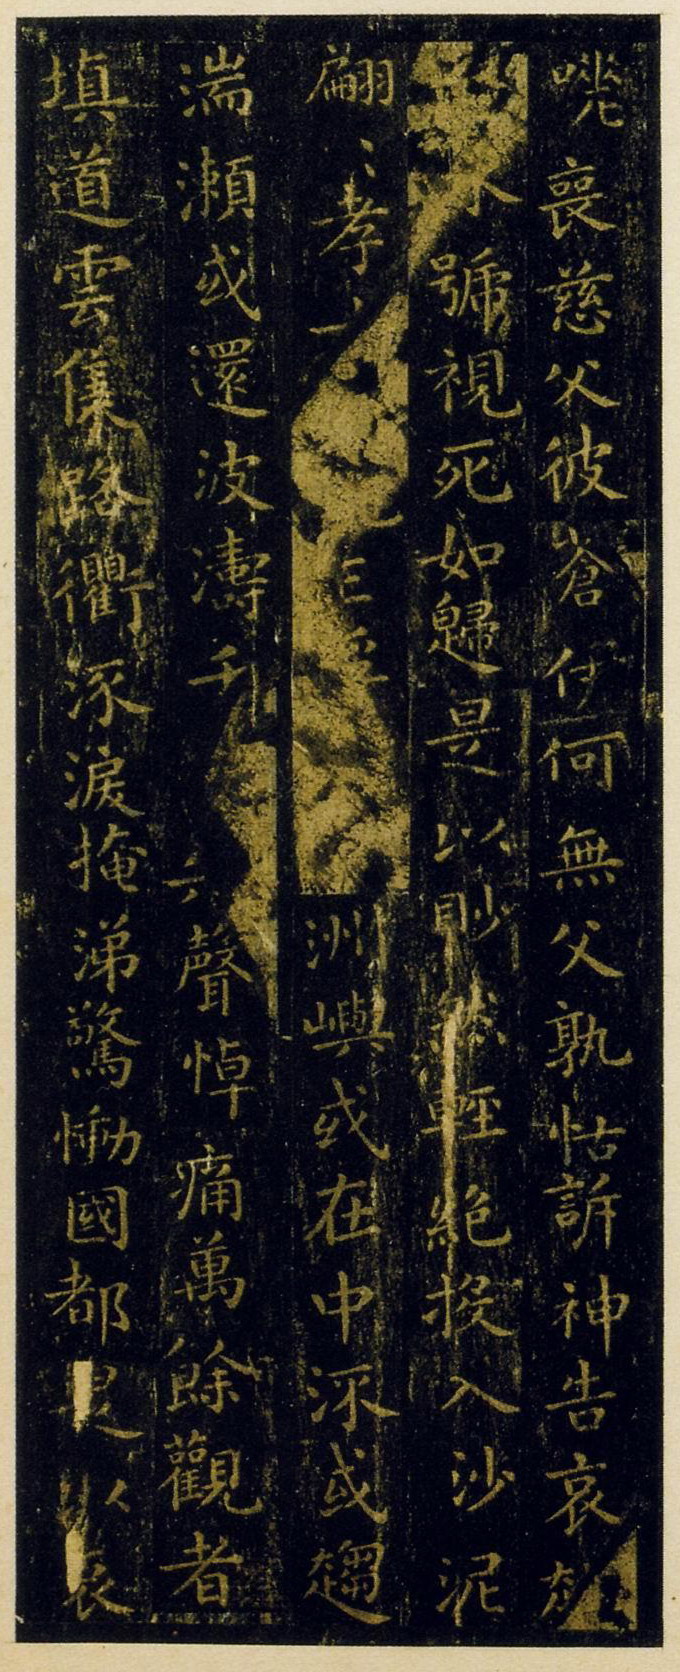 咷喪慈父彼蒼伊何無父孰怙訴神告哀赴
永號視死如歸是以眇然輕絕投入沙泥
翩〻孝女載沉載浮洲嶼或在中流或趨
湍瀨或還波濤千聲悼痛萬餘觀者
填道雲集路衢流淚掩涕驚慟國都是以哀